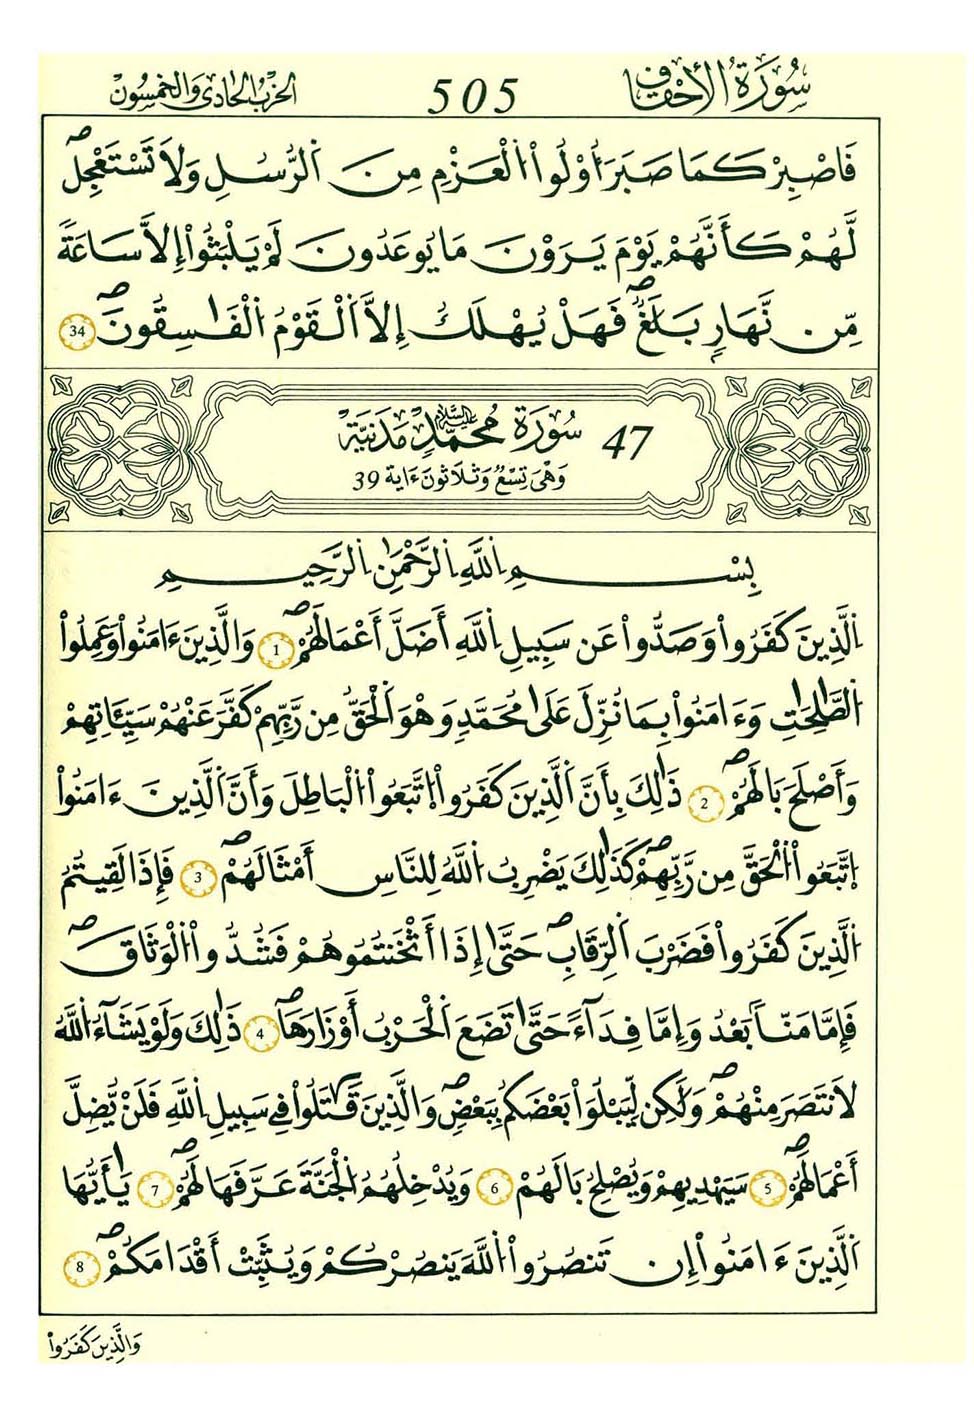 سُورَةُ الأَحْقَافِ 505 الحِزْبُ الحَادِي وَالخَمْسُونَ
فَاصْبِرْ كَمَا صَبَرَ أُوْلُواْ اُ۬لْعَزْمِ مِنَ اَ۬لرُّسُلِ وَلَا تَسْتَعْجِل
لَّهُمْ كَأَنَّهُمْ يَوْمَ يَرَوْنَ مَا يُوعَدُونَ لَمْ يَلْبَثُواْ إِلَّا سَاعَةً
مِّن نَّهَارٍ بَلَٰغٌ فَهَلْ يُهْلَكُ إِلَّا اَ۬لْقَوْمُ اُ۬لْفَٰسِقُونَ 34
47 سُورَةُ مُحَمَّدٍ عليه السلام مَدَنِيَّة
وَهْيَ تِسْعٌ وَثَلَاثُونَ ءَايَة 39
بِسْمِ اِ۬للَّهِ اِ۬لرَّحْمَٰنِ اِ۬لرَّحِيمِ
اِ۬لَّذِينَ كَفَرُواْ وَصَدُّواْ عَن سَبِيلِ اِ۬للَّهِ أَضَلَّ أَعْمَالَهُمْ 1 وَالَّذِينَ ءَامَنُواْ وَعَمِلُواْ
اُ۬لصَّٰلِحَٰتِ وَءَامَنُواْ بِمَا نُزِّلَ عَلَىٰ مُحَمَّدٍ وَهْوَ اَ۬لْحَقُّ مِن رَّبِّهِمْ كَفَّرَ عَنْهُمْ سَيِّـَٔاتِهِمْ
وَأَصْلَحَ بَالَهُمْ 2 ذَٰلِكَ بِأَنَّ اَ۬لَّذِينَ كَفَرُواْ اُ۪تَّبَعُواْ اُ۬لْبَاطِلَ وَأَنَّ اَ۬لَّذِينَ ءَامَنُواْ
اُ۪تَّبَعُواْ اُ۬لْحَقَّ مِن رَّبِّهِمْ كَذَٰلِكَ يَضْرِبُ اُ۬للَّهُ لِلنَّاسِ أَمْثَالَهُمْ 3 فَإِذَا لَقِيتُمُ
اُ۬لَّذِينَ كَفَرُواْ فَضَرْبَ اَ۬لرِّقَابِ حَتَّىٰ إِذَا أَثْخَنتُمُوهُمْ فَشُدُّواْ اُ۬لْوَثَاقَ
فَإِمَّا مَنّاً بَعْدُ وَإِمَّا فِدَآءً حَتَّىٰ تَضَعَ اَ۬لْحَرْبُ أَوْزَارَهَا 4 ذَٰلِكَ وَلَوْ يَشَآءُ اُ۬للَّهُ
لَانتَصَرَ مِنْهُمْ وَلَٰكِن لِّيَبْلُوَاْ بَعْضَكُم بِبَعْضٍ وَالَّذِينَ قَٰتَلُواْ فِي سَبِيلِ اِ۬للَّهِ فَلَنْ يُّضِلَّ
أَعْمَالَهُمْ 5 سَيَهْدِيهِمْ وَيُصْلِحُ بَالَهُمْ 6 وَيُدْخِلُهُمُ اُ۬لْجَنَّةَ عَرَّفَهَا لَهُمْ 7 يَٰأَيُّهَا
اَ۬لَّذِينَ ءَامَنُواْ إِن تَنصُرُواْ اُ۬للَّهَ يَنصُرْكُمْ وَيُثَبِّتْ أَقْدَامَكُمْ 8
وَالَّذِينَ كَفَرُواْ